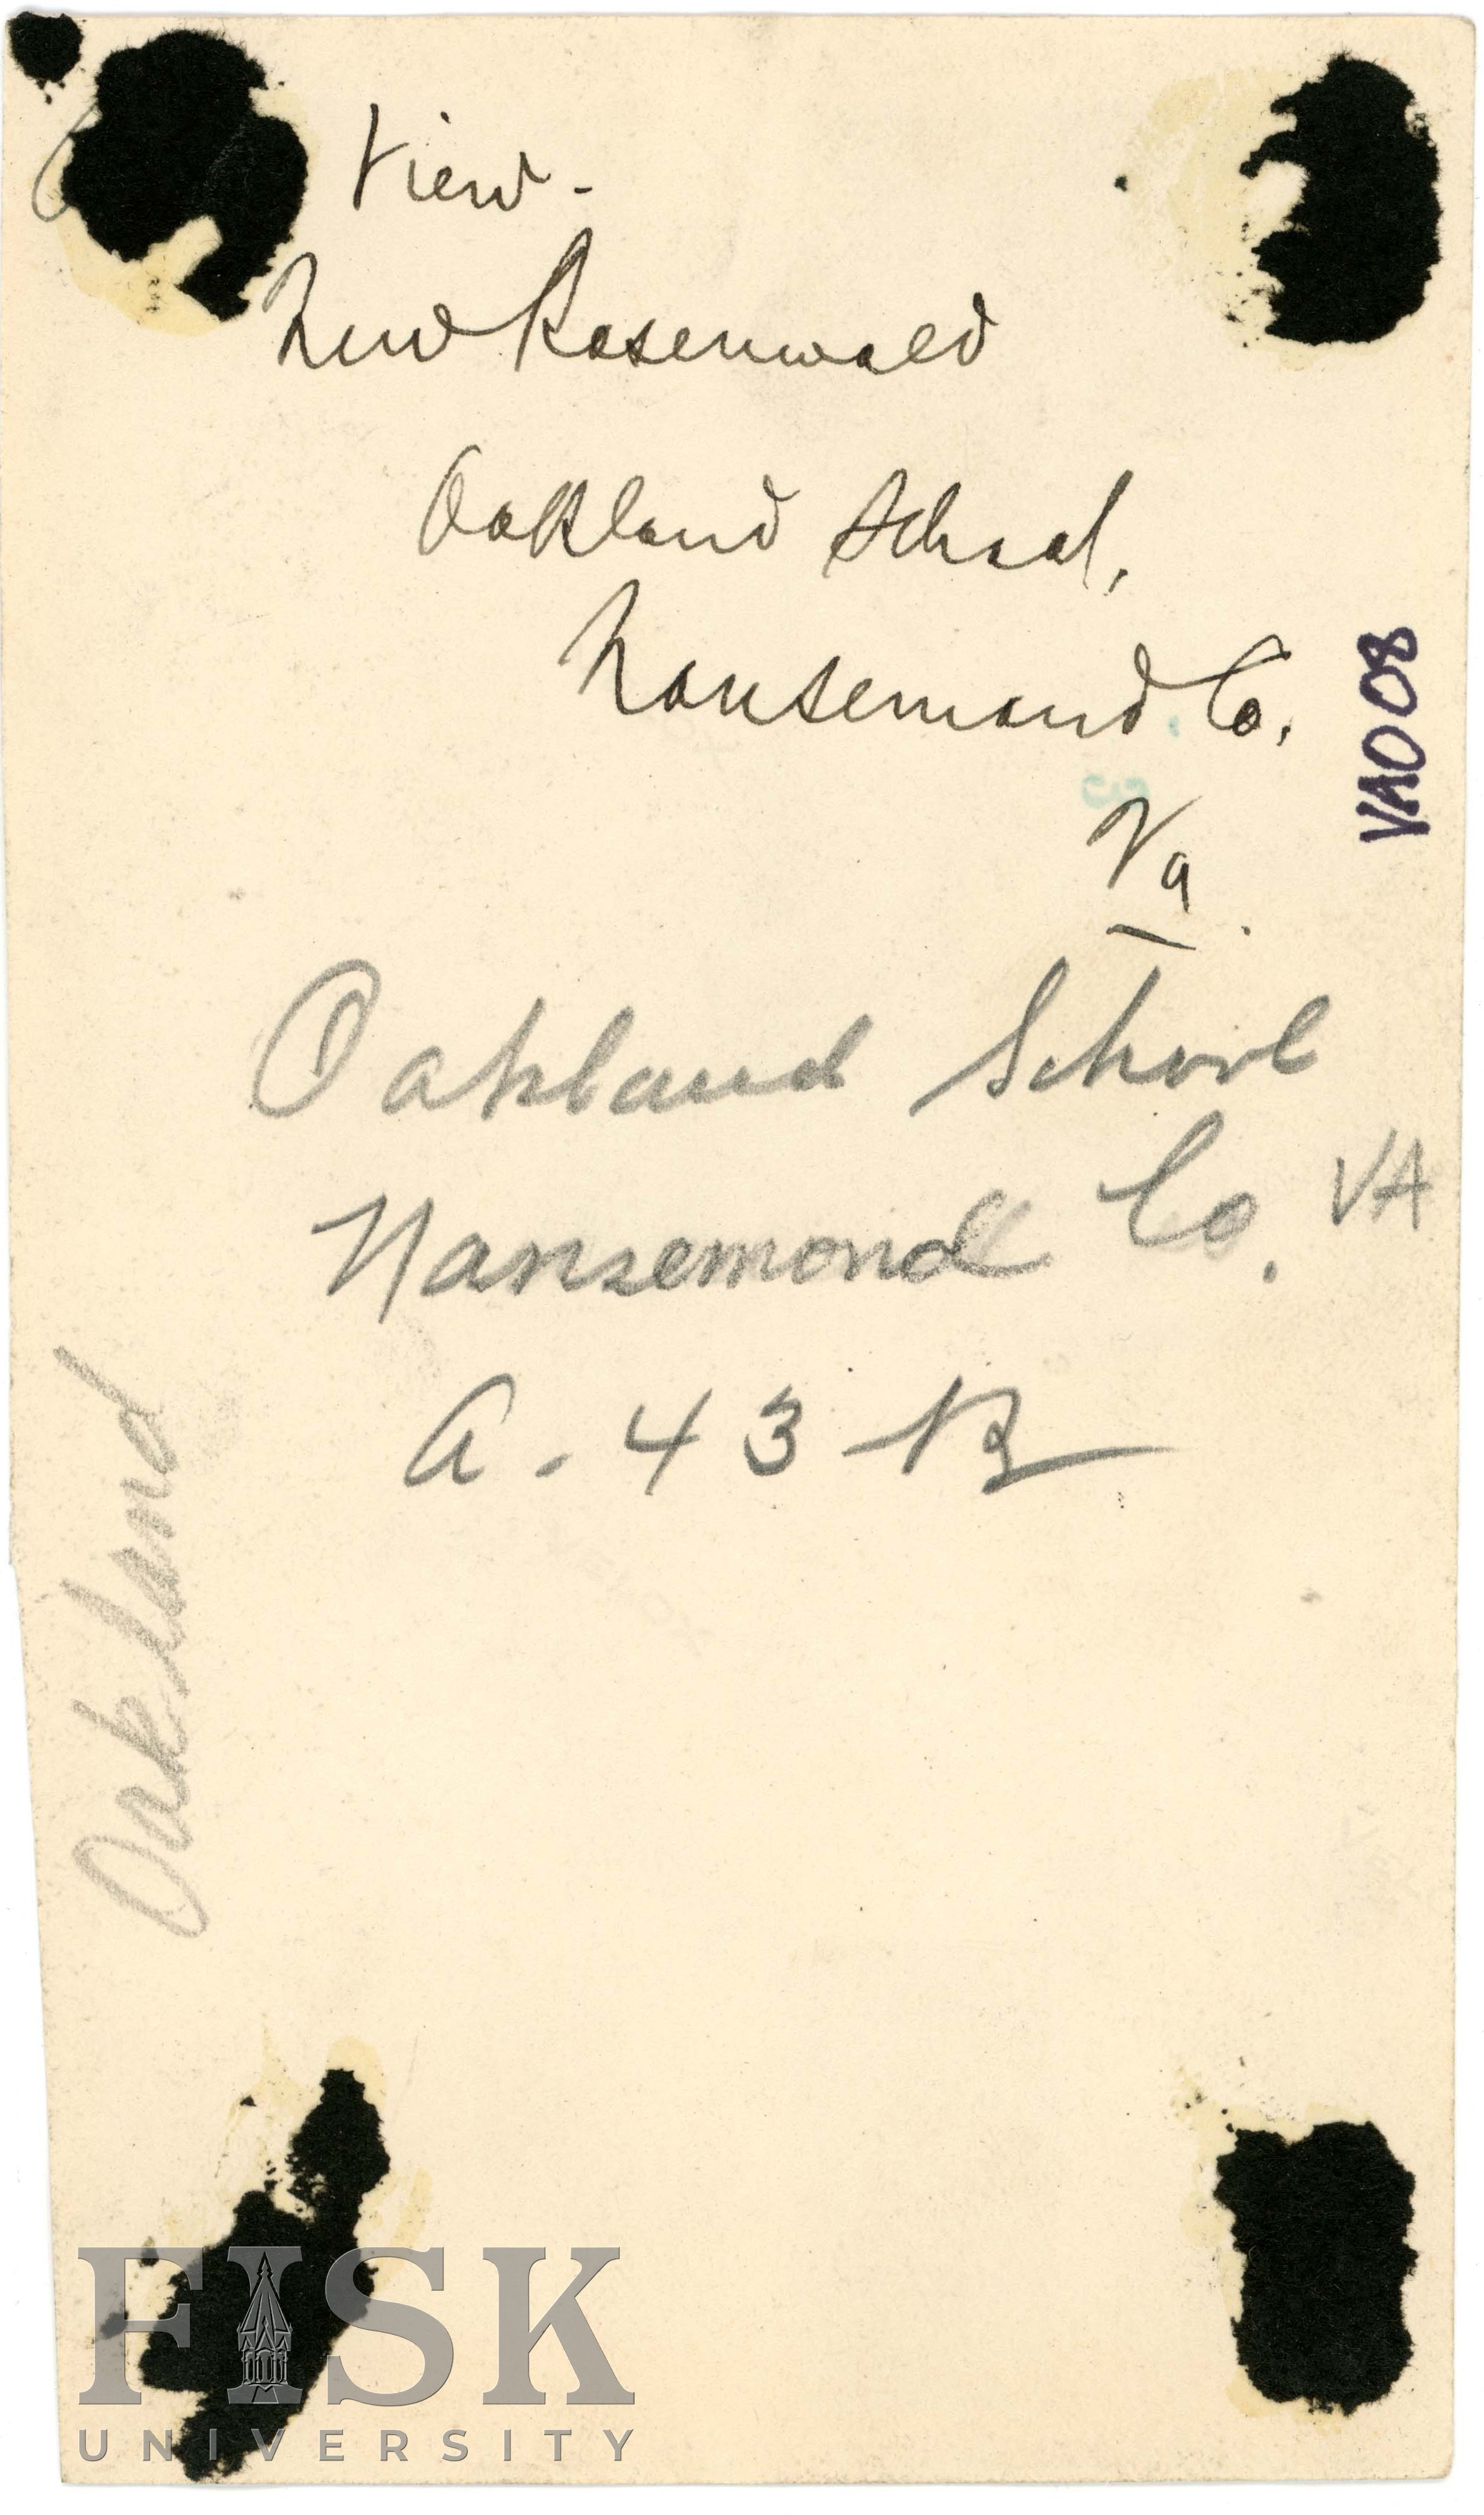 View -
New Rosenwald
Oakland School,
Nansemond Co.
Va
VA008
Oakland School
Nansemond Co. VA
A - 43 - B
Oakland
FISK
UNIVERSITY